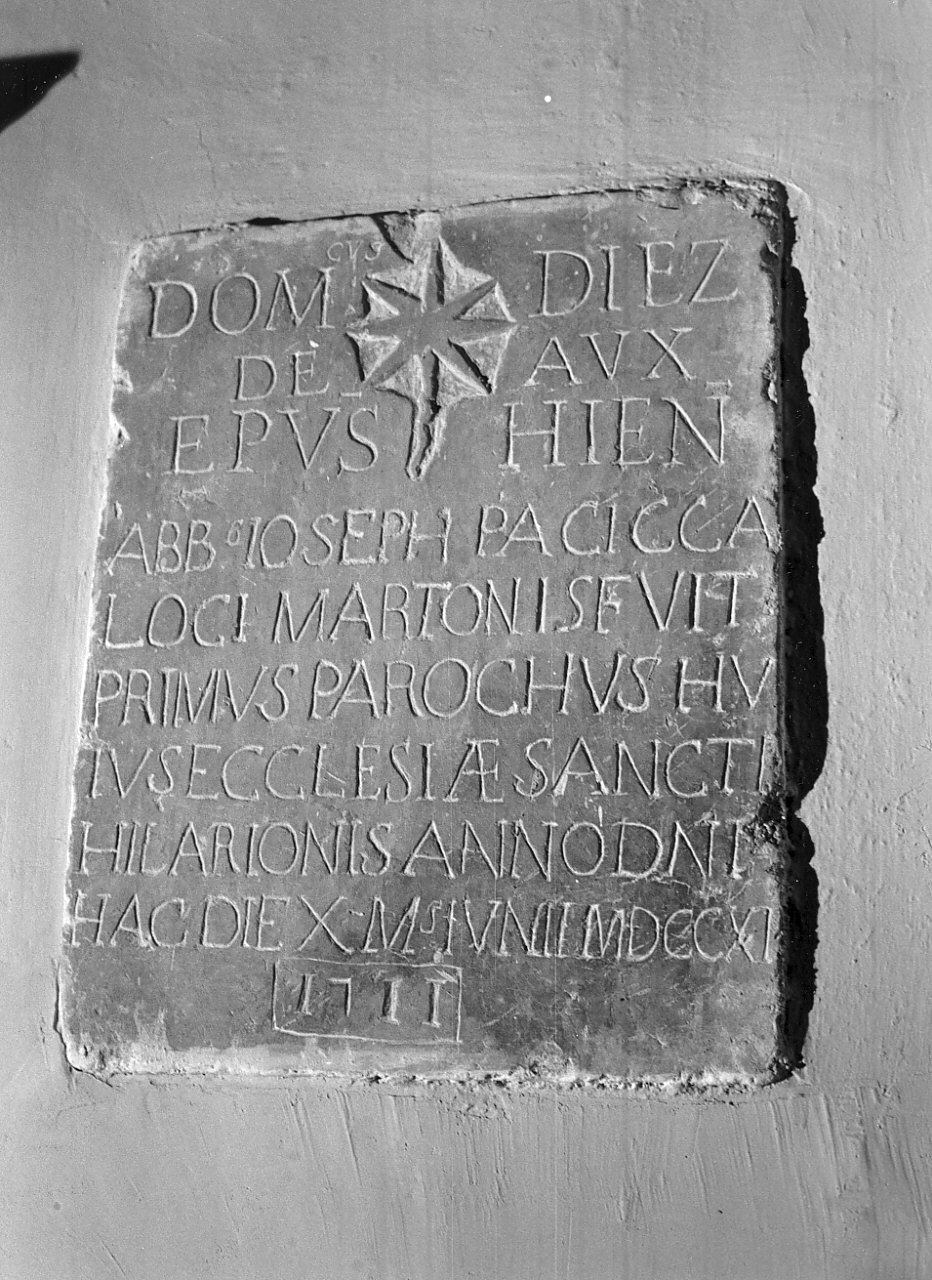 DOMcus DIEZ
DE AVX
EPVS HIEN
ABB. IOSEPH PACICCA
LOCI MARTONI SEVIT
PRIMVS PAROCHVS HV
IVS ECCLESIÆ SANCTI
HILARIONIS ANNO DNI
HAC DIE X Ms IVNII MDCCXI
1711